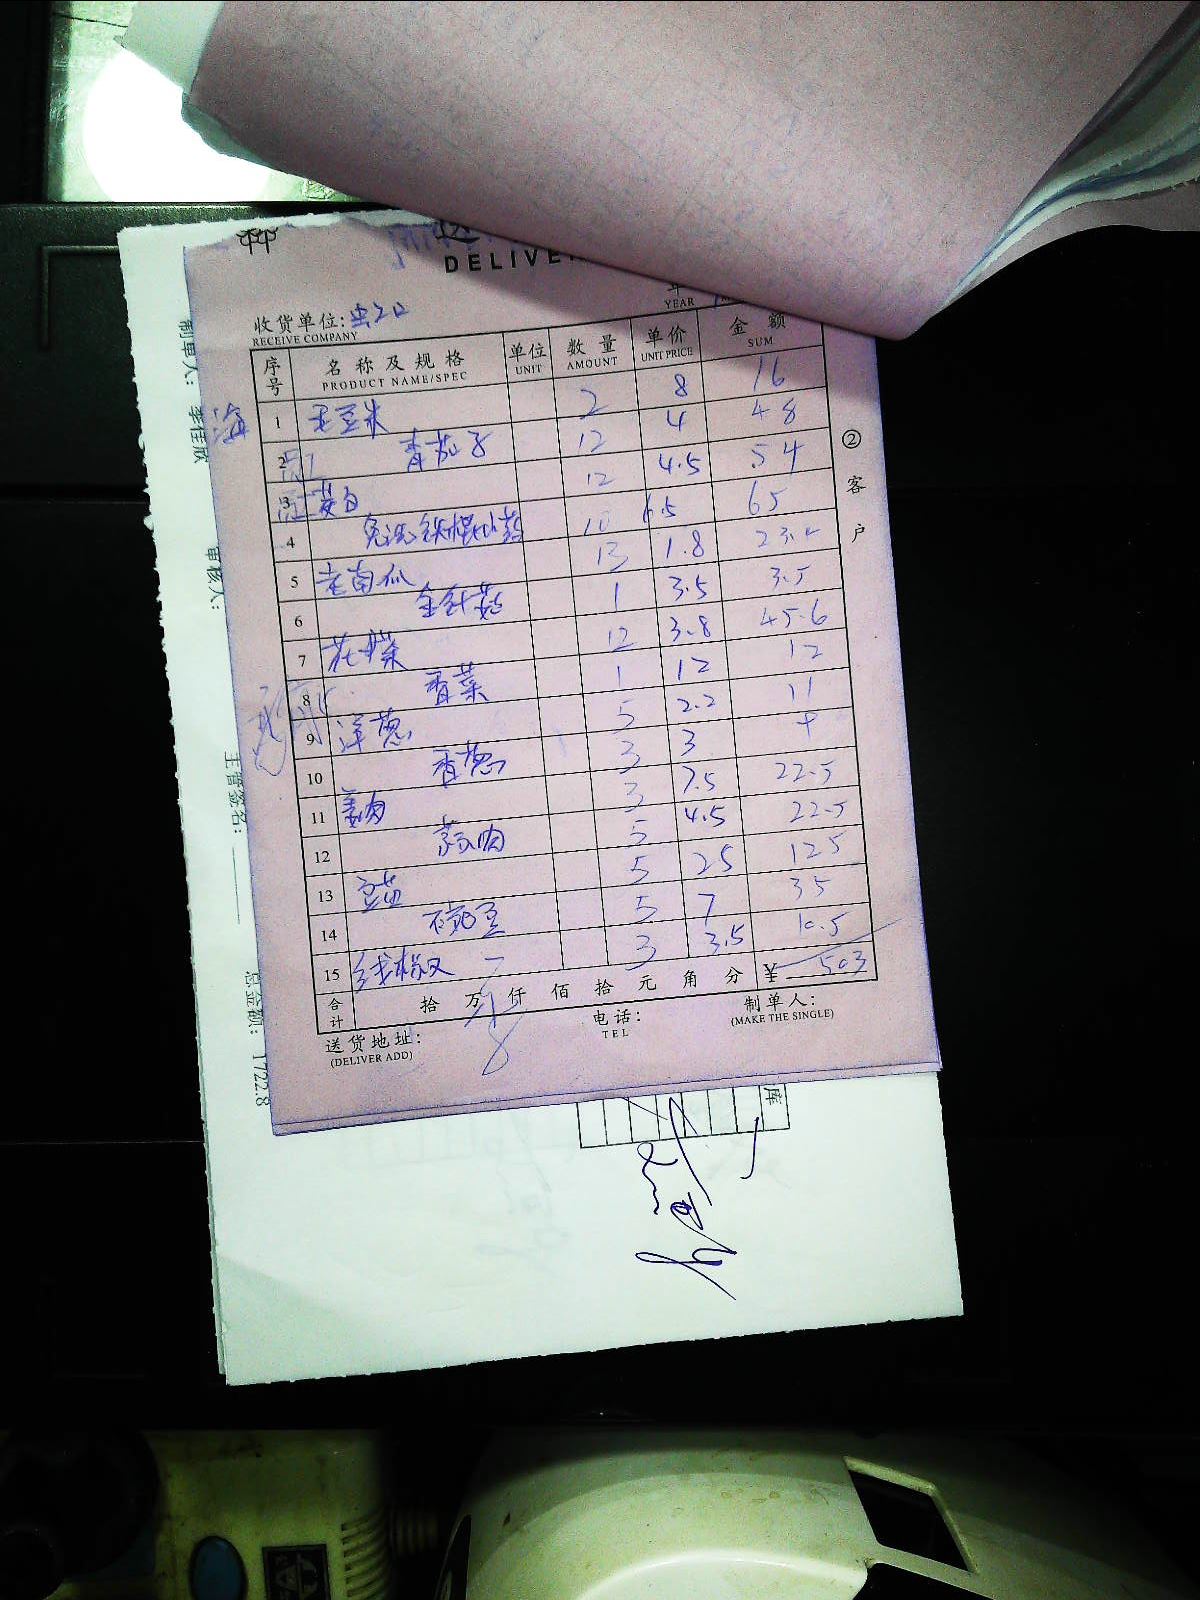 DELIVE
YEAR
收货单位:
RECEIVE COMPANY
序号 名称及规格 单位 数量 单价 金额
PRODUCT NAME/SPEC UNIT AMOUNT UNIT PRICE SUM
1 毛豆米 2 8 16
2 青茄子 12 4 48
3 茭白 12 4.5 54
4 免洗铁棍山药 10 6.5 65
5 老南瓜 13 1.8 23.4
6 金针菇 1 3.5 3.5
7 花菜 12 3.8 45.6
8 香菜 1 12 12
9 洋葱 5 2.2 11
10 香葱 3 3 9
11 姜肉 3 7.5 22.5
12 蒜肉 5 4.5 22.5
13 豆苗 5 25 125
14 豌豆 5 7 35
15 线椒 3 3.5 10.5
合计 拾 万 仟 佰 拾 元 角 分 ¥ 503
送货地址:
(DELIVER ADD)
电话:
TEL
制单人:
(MAKE THE SINGLE)
②客户
制单人: 李佳欣
审核人:
主管签名:
总金额: 1722.8
库